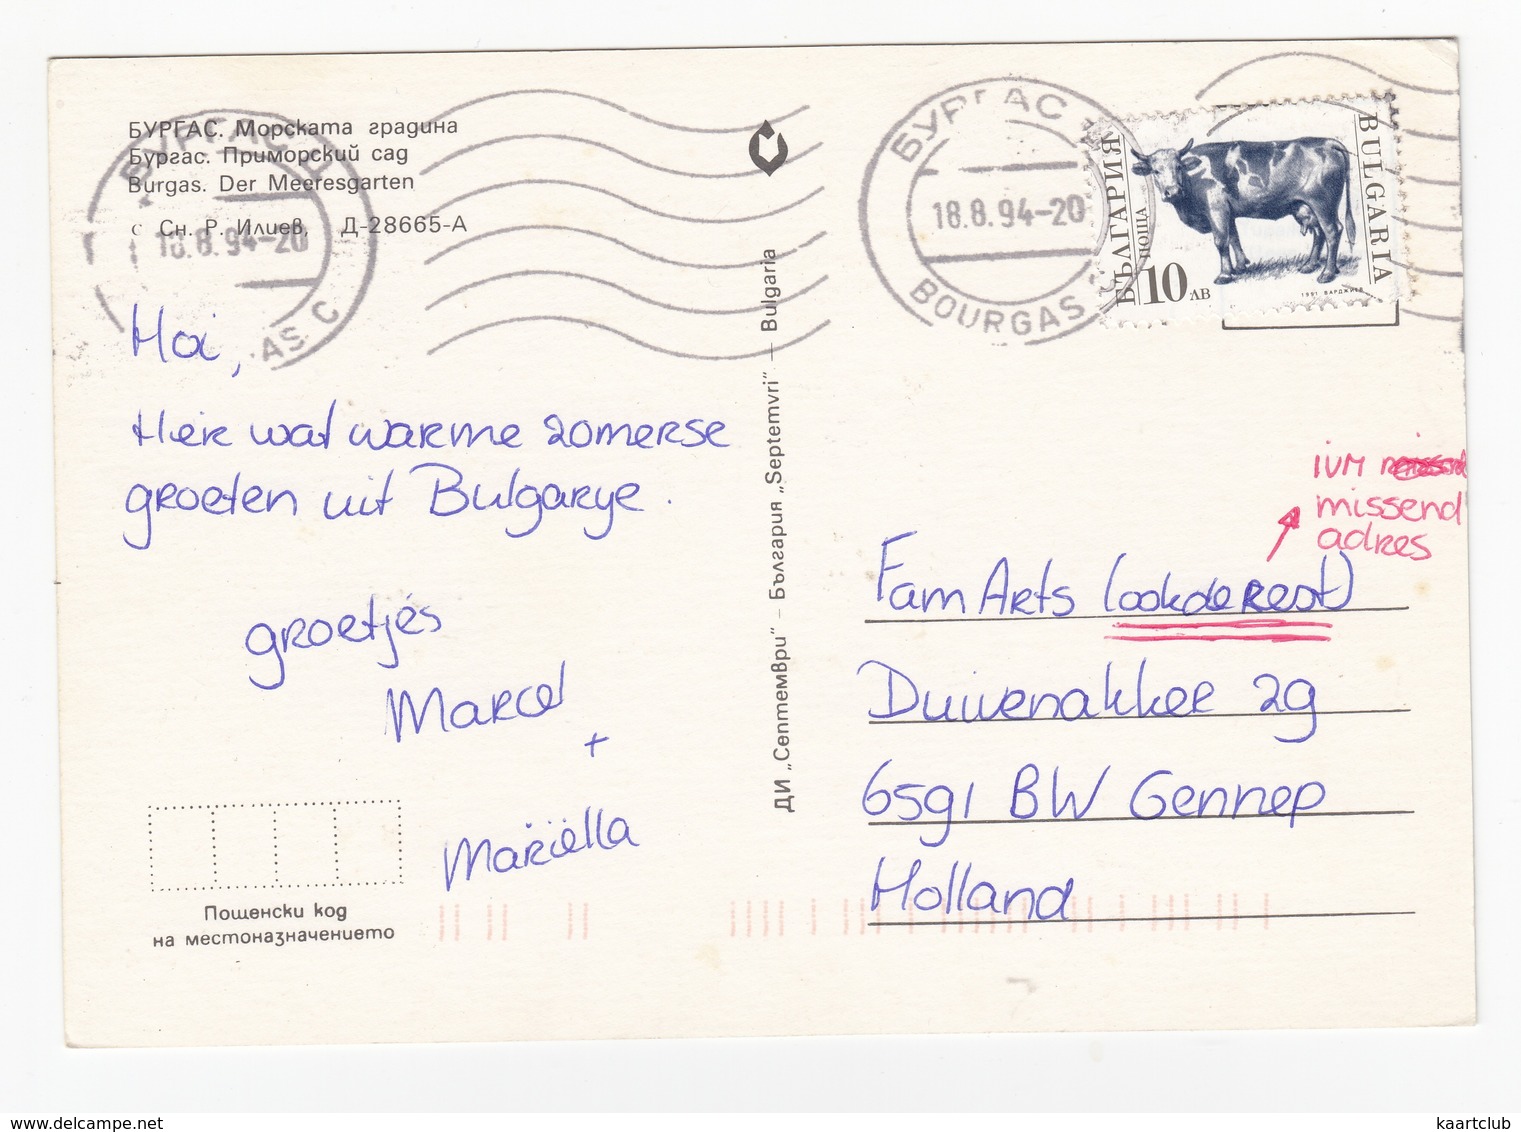 БУРГАС. Морската градина
Бургас. Приморский сад
Burgas. Der Meeresgarten
с Сн. Р. Илиев, Д-28665-А
18.8.94-20
Hoi,
Hier wat warme zomerse
groeten uit Bulgarye.
groetjés
Marcel
+
Mariëlla
Пощенски код
на местоназначението
ДИ „Септември" – България „Septemvri" – Bulgaria
БУРГАС
18.8.94-20
BOURGAS
БЪЛГАРИЯ
ПОЩА
10 ЛВ
BULGARIA
1991 ВАРДЖИЕВ
IVM
missend
adres
Fam Arts (ook de rest)
Duivenakker 29
6591 BW Gennep
Holland
delcampe.net
kaartclub